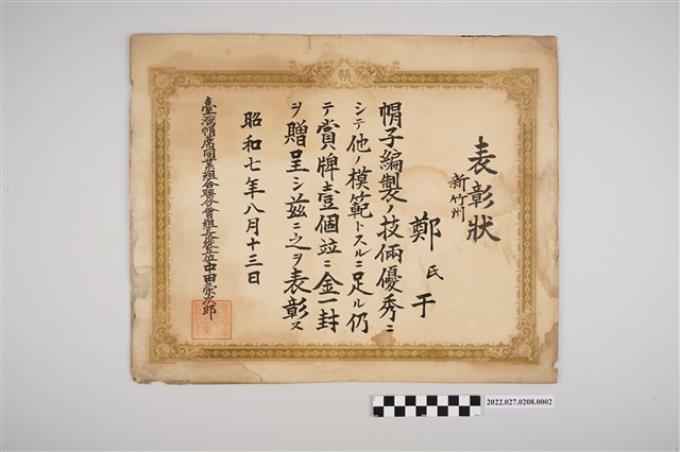 帽
表彰状
新竹州
鄭氏于
帽子編製ノ技倆優秀ニ
シテ他ノ模範トスルニ足ル仍
テ賞牌壹個竝ニ金一封
ヲ贈呈シ茲ニ之ヲ表彰ス
昭和七年八月十三日
臺灣帽蓆同業組合聯合會組長從七位中田榮次郎
2022.027.0208.0002